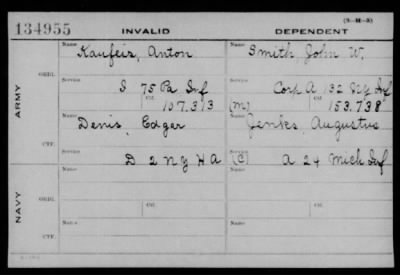 134955 INVALID DEPENDENT (3-M-3)
Name Kaufeis, Anton Name Smith John W.
ARMY ORIG. Service I 75 Pa Inf Service Corp A 132 NY Inf
Ctf. 107.313 (M) Ctf. 153.738
Name Denis, Edgar Name Jenks, Augustus
CTF. Service D 2 N Y H A Service (C) A 24 Mich Inf
NAVY ORIG. Name Name
Service Ctf. Service Ctf.
CTF. Name Name
Service Service